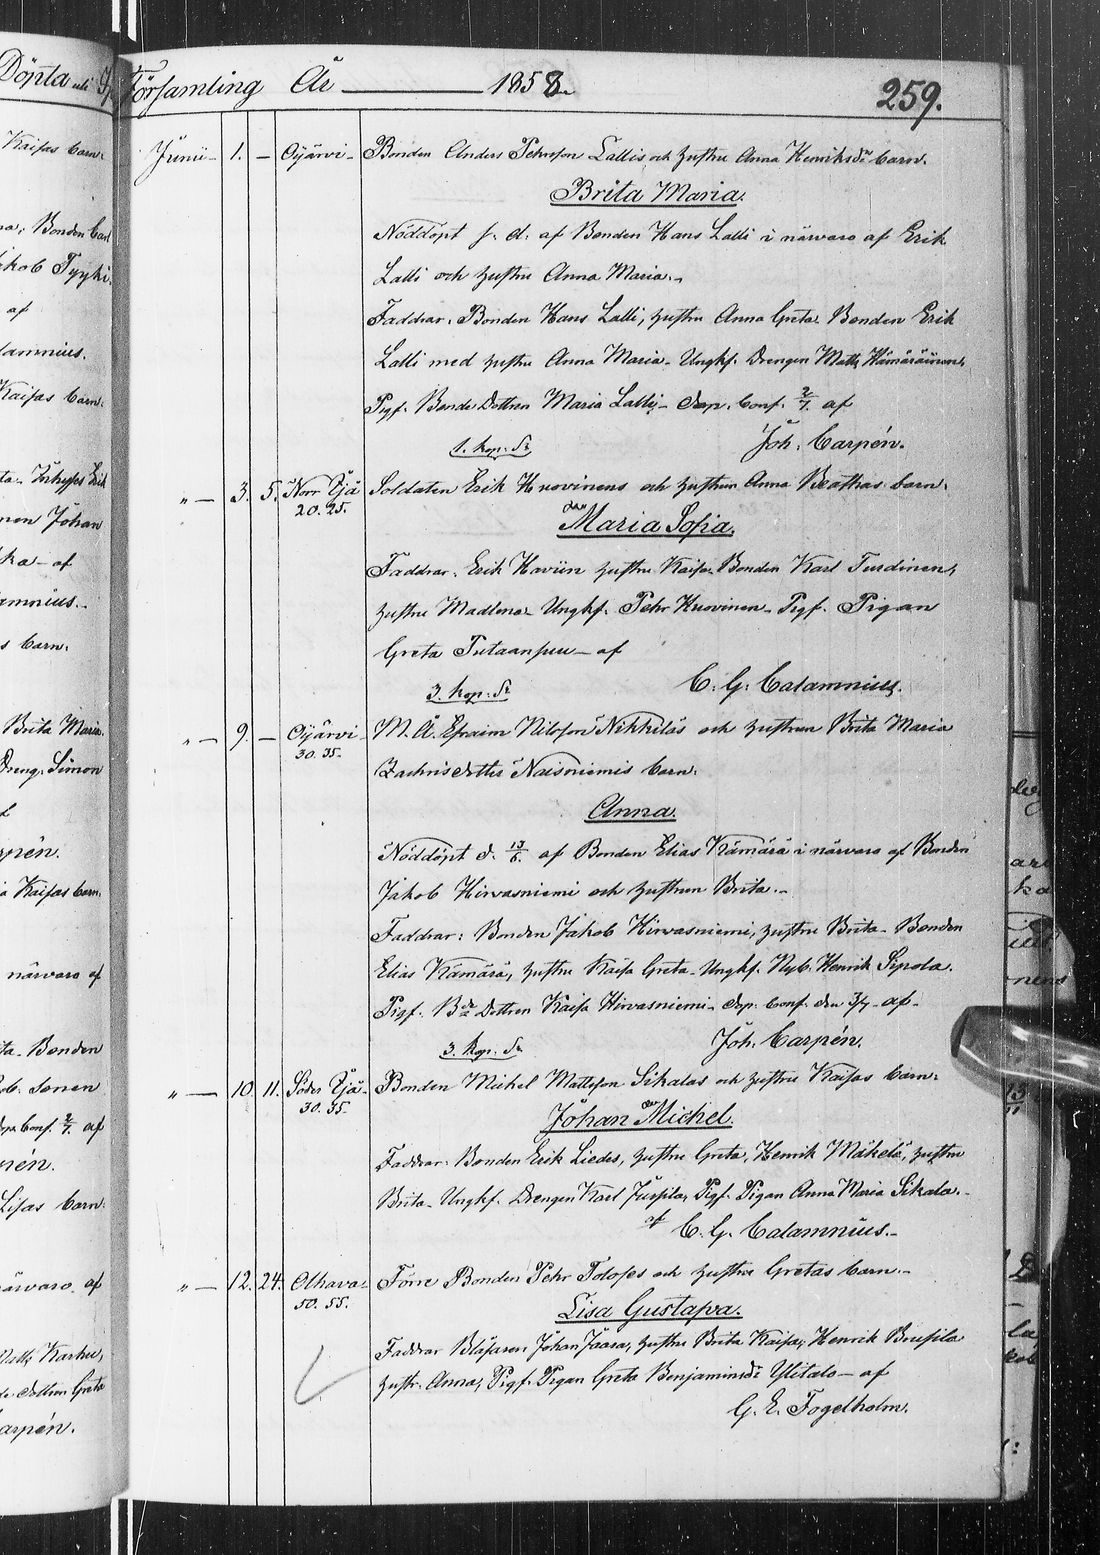 Församling År 1858 259.
Junii 1. Oijärvi Bonden Anders Pehrsson Lallis och hustru Anna Henriksdr barn.
Brita Maria.
Nöddöpt s. d. af Bonden Hans Lalli i närvaro af Erik
Lalli och hustru Anna Maria.
Faddrar: Bonden Hans Lalli, hustru Anna Greta. Bonden Erik
Lalli med hustru Anna Maria. Ungkf. Drengen Matts Hämäräinen,
Pigf. Bonde Dottren Maria Lalli. Dop. Conf. 2/7. af
1. kop. Sr Joh. Carpén.
" 3. 5. Norr Ijå Soldaten Erik Kuovinens och hustrun Anna Beathas barn.
20. 25. Maria Sofia.
Faddrar: Erik Haviin hustru Kaisa. Bonden Karl Turdinen,
hustru Madlena. Ungkf. Pehr Kuovinen. Pigf. Pigan
Greta Putaanpuu af
3. kop. Sr C. G. Calamnius.
" 9. Oijärvi M. Å. Efraim Nilsson Nikkiläs och hustrun Brita Maria
30. 35. Zachrisdotter Naisniemis barn.
Anna.
Nöddöpt d. 13/6. af Bonden Elias Kämärä i närvaro af Bonden
Jakob Hirvasniemi och hustrun Brita.
Faddrar: Bonden Jakob Hirvasniemi, hustru Brita. Bonden
Elias Kämärä, hustru Kaisa Greta. Ungkf. Nyb. Henrik Sipola.
Pigf. Bde Dottren Kaisa Hirvasniemi. Dop. Conf. den 3/7. af
3. kop. Sr Joh. Carpén.
" 10. 11. Söder Ijå Bonden Mickel Mattsson Sikalas och hustru Kaisas barn.
30. 35. Johan Michel.
Faddrar: Bonden Erik Liedes, hustru Greta, Henrik Mäkelä, hustru
Brita. Ungkf. Drengen Karl Juspila, Pigf. Pigan Anna Maria Sikala.
af C. G. Calamnius.
" 12. 24. Olhava. Förre Bonden Pehr Toloses och hustru Gretas barn.
50. 55. Lisa Gustava.
Faddrar Johan Jaara, hustru Brita Kaisa, Henrik
hustr. Anna, Pigf. Pigan Greta Benjaminsdr Ylitalo af
G. E. Fogelholm.